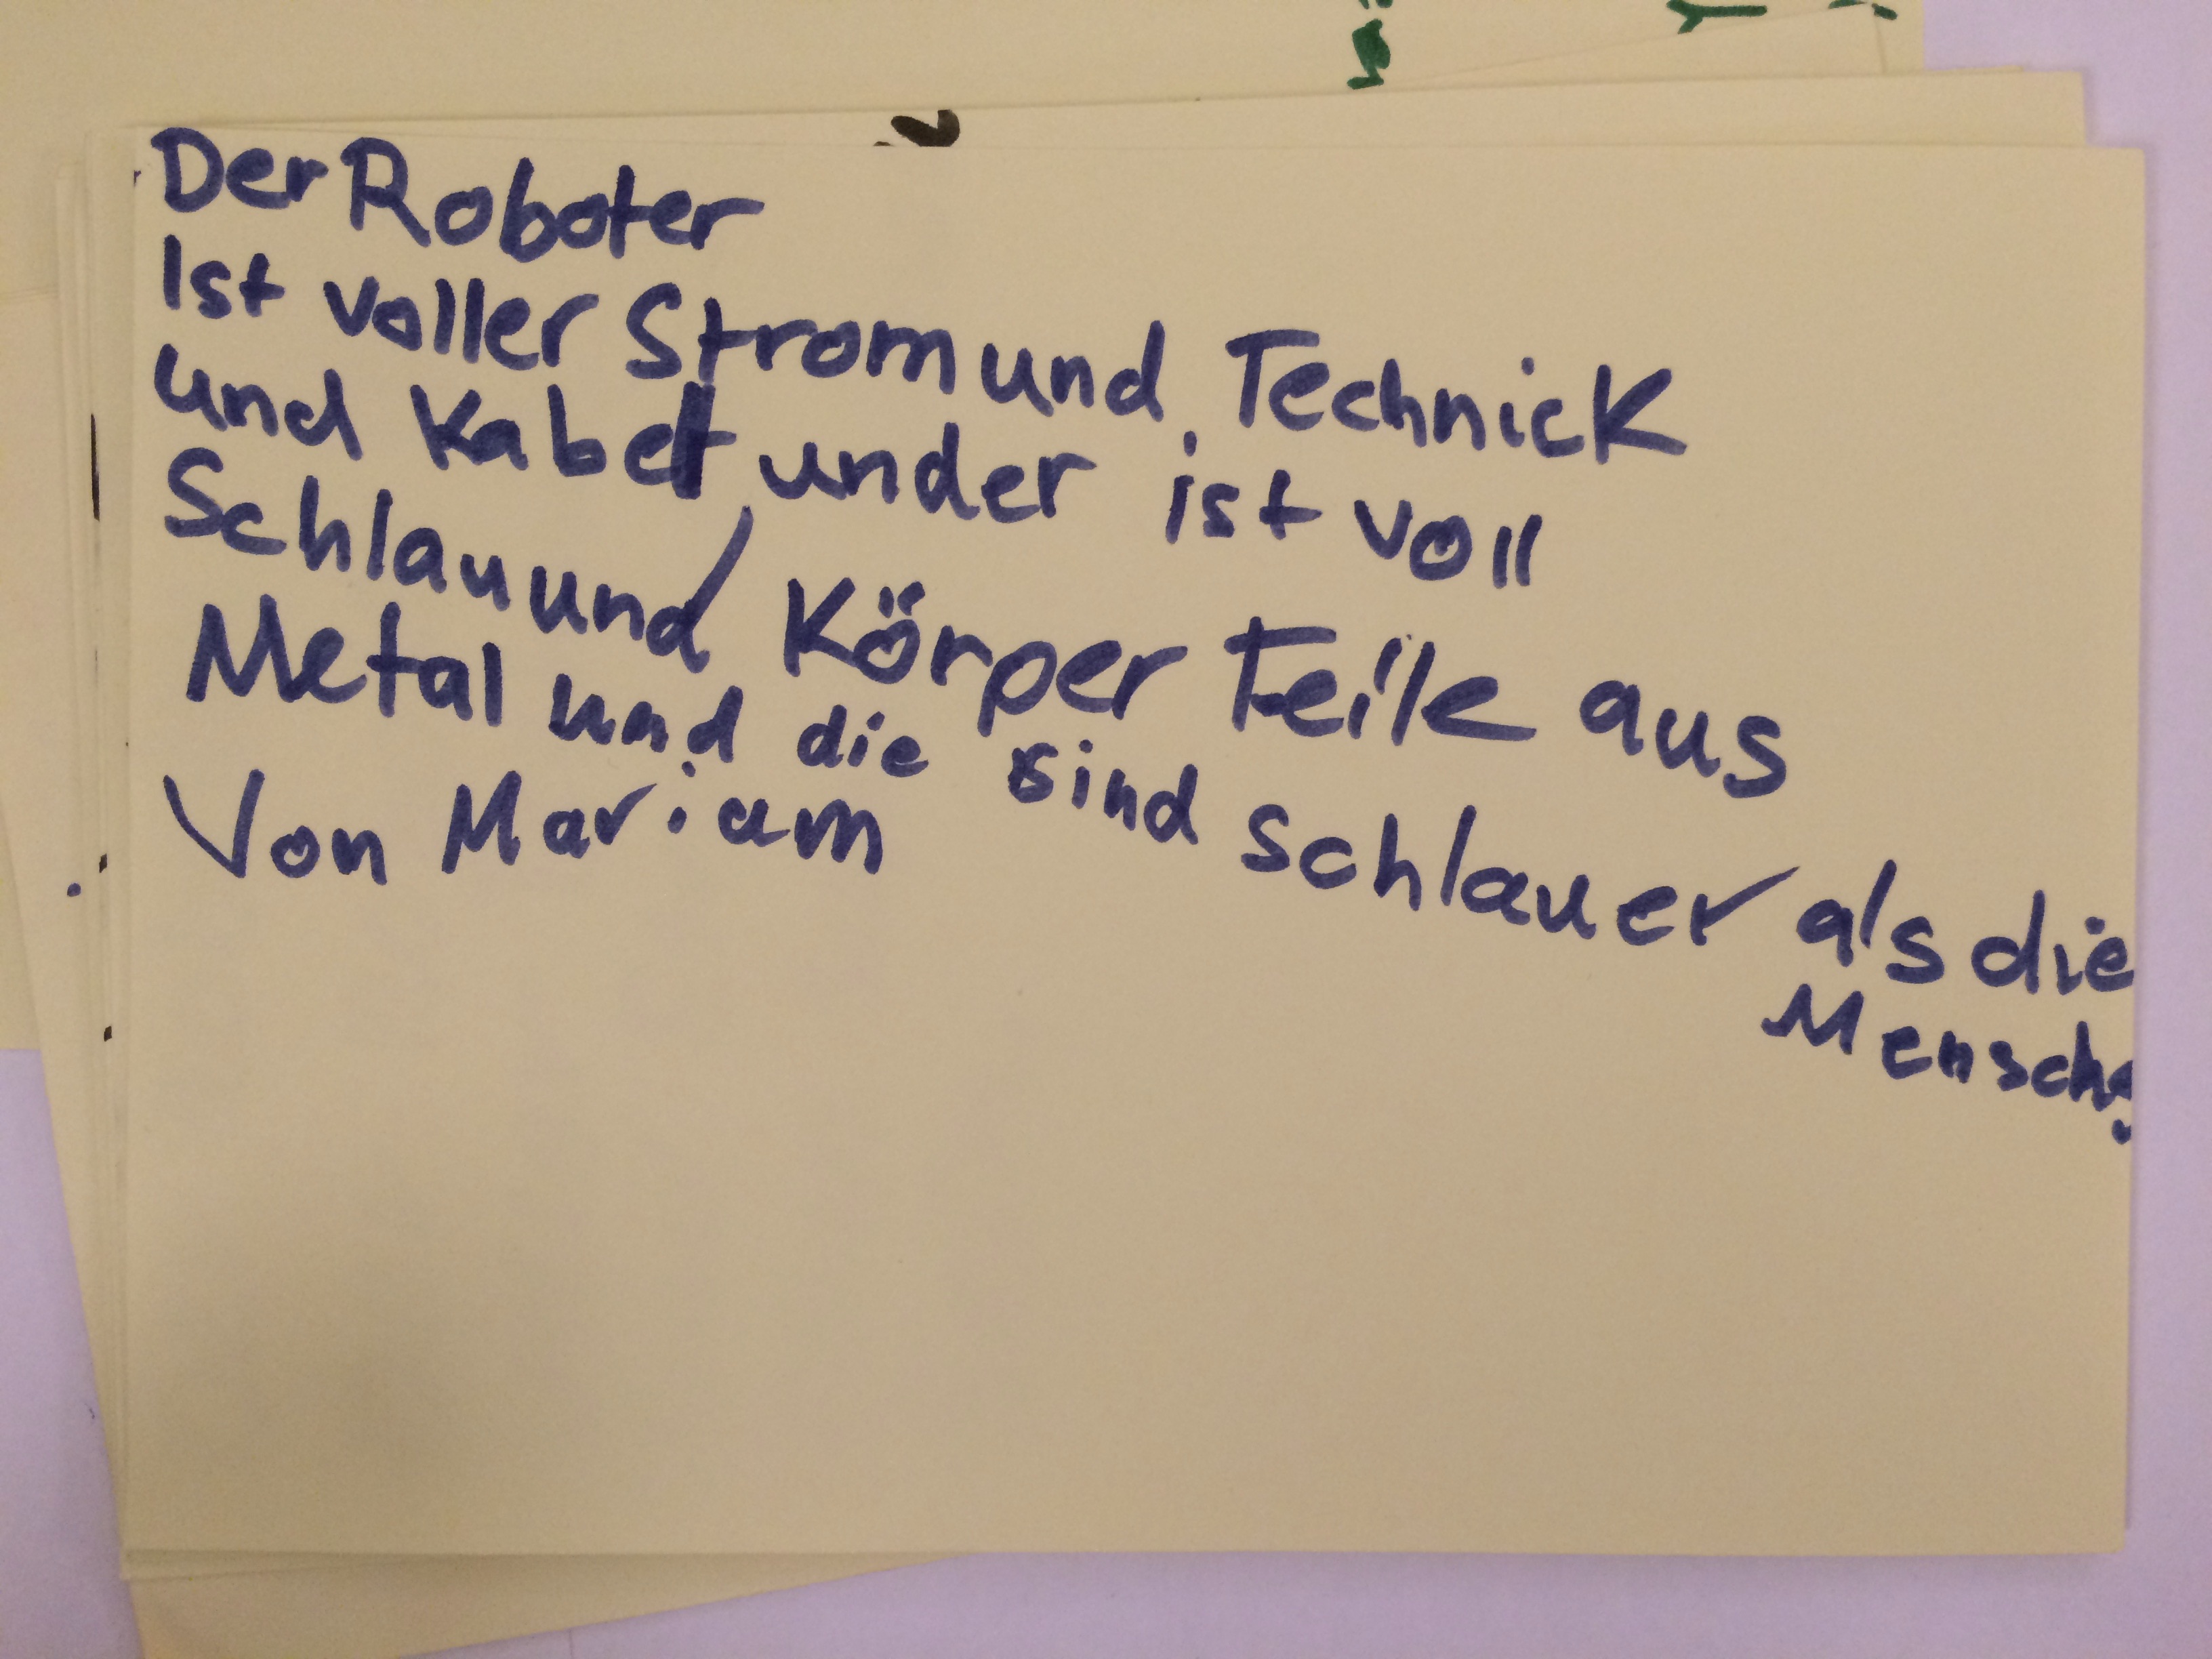 Der Roboter
Ist voller Strom und Technick
und Kabel under ist voll
Schlau und Körper Teile aus
Metal und die sind schlauer als die
Mensche
Von Mariam